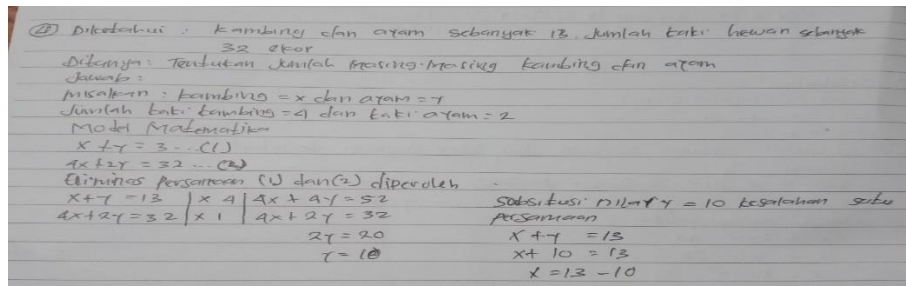 ④ Diketahui : kambing dan ayam sebanyak 13. Jumlah kaki hewan sebanyak
32 ekor
Ditanya : Tentukan Jumlah Masing-Masing kambing dan ayam
Jawab :
Misalkan : kambing = x dan ayam = y
Jumlah kaki kambing = 4 dan kaki ayam = 2
Model Matematika
x + y = 3 ... (1)
4x + 2y = 32 ... (2)
Eliminas Persamaan (1) dan (2) diperoleh
x + y = 13 | x 4 | 4x + 4y = 52
4x + 2y = 32 | x 1 | 4x + 2y = 32
2y = 20
y = 10
Subsitusi nilai y = 10 kesalahan satu
persamaan
x + y = 13
x + 10 = 13
x = 13 - 10